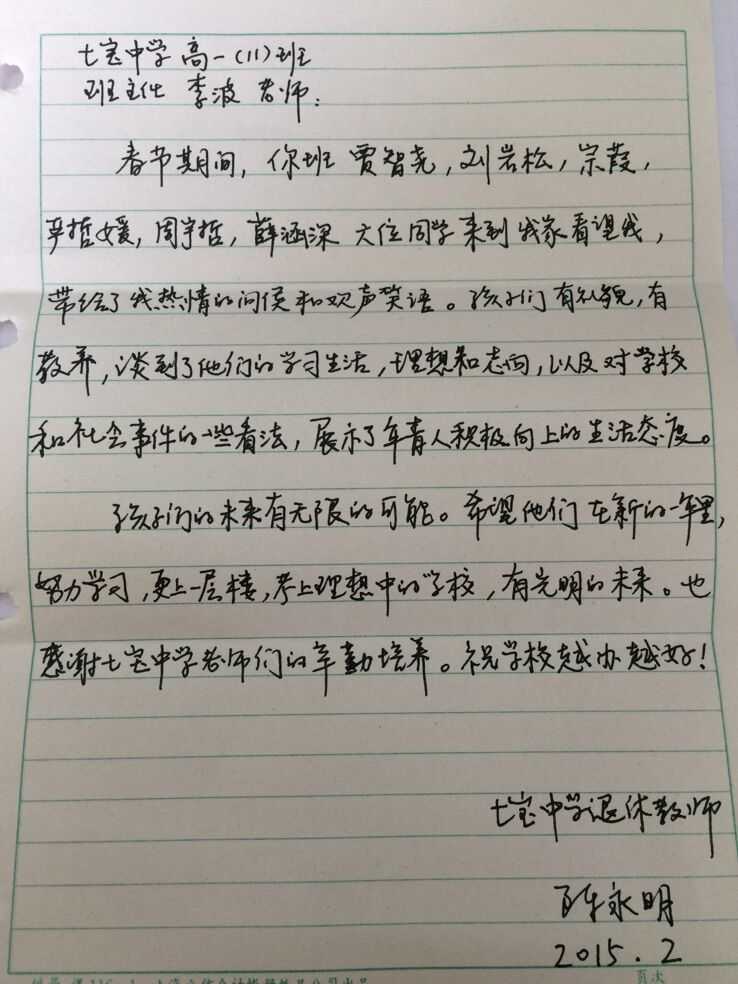 七宝中学高一(11)班
班主任 李波 老师:
春节期间,你班 贾智尧,刘岩松,宗葭,
尹哲媛,周宇哲,薛涵深 六位同学来到我家看望我,
带给了我热情的问侯和欢声笑语。孩子们有礼貌,有
教养,谈到了他们的学习生活,理想和志向,以及对学校
和社会事件的一些看法,展示了年青人积极向上的生活态度。
孩子们的未来有无限的可能。希望他们在新的一年里,
努力学习,更上一层楼,考上理想中的学校,有光明的未来。也
感谢七宝中学老师们的辛勤培养。祝学校越办越好!
七宝中学退休教师
陈永明
2015.2
页次